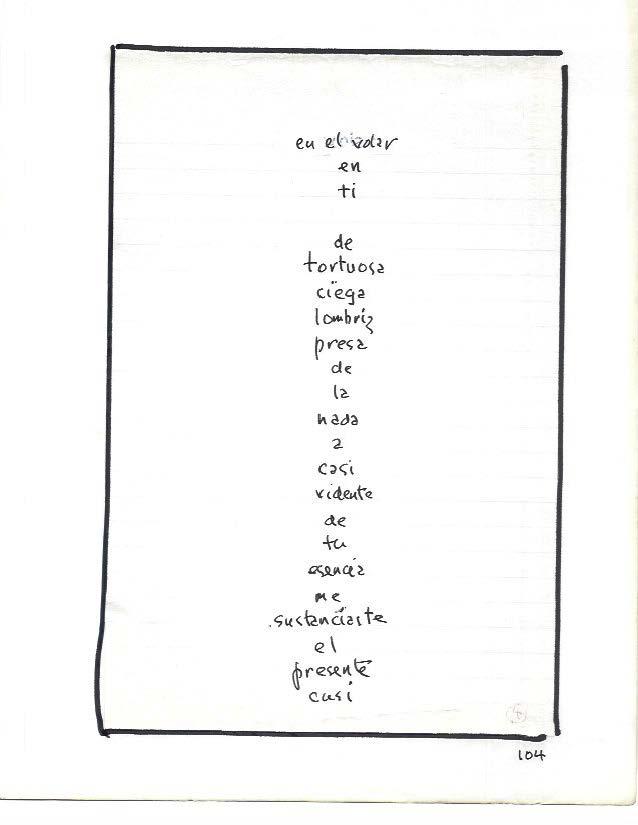 en el volar
en
ti
de
tortuosa
ciega
lombriz
presa
de
la
nada
a
casi
vidente
de
tu
esencia
me
sustanciaste
el
presente
casi
104